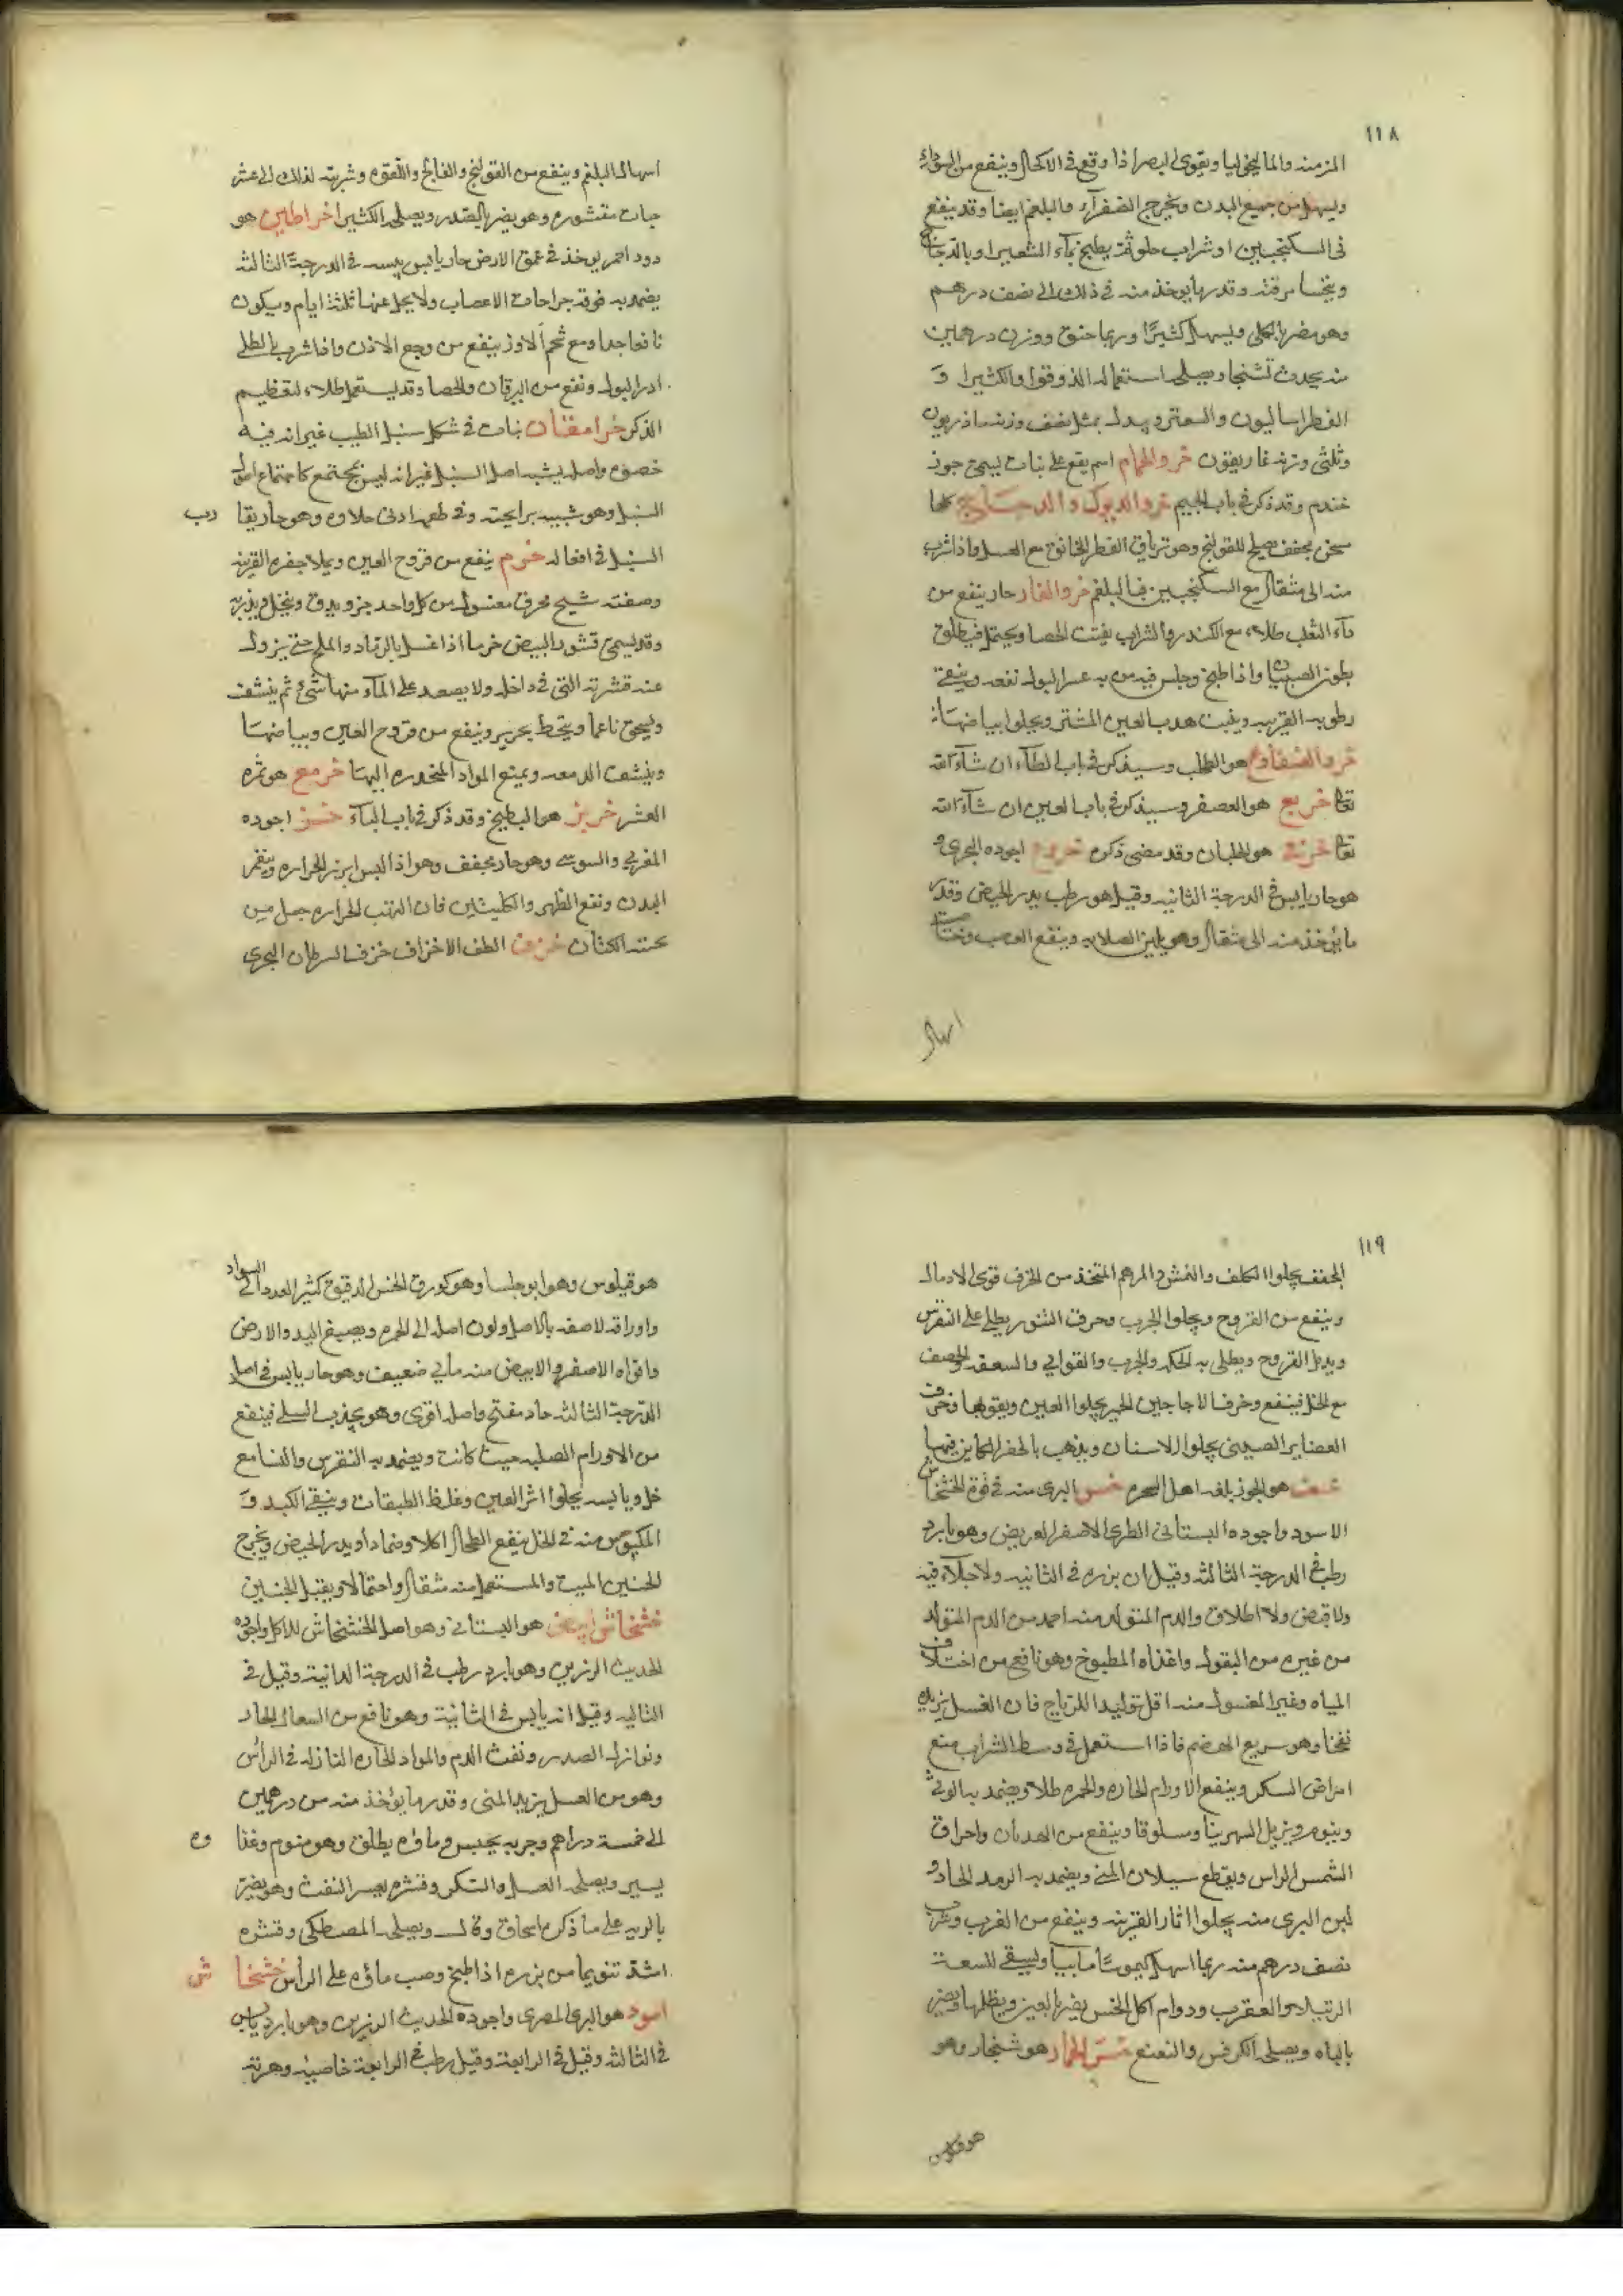 ١١٨
المزمنه والماليخوليا ويقوى البصر اذا وقع في الاكحال وينفع من
ويسهل من جميع البدن ويخرج الصفرآء والبلغم ايضا وقد ينفع
في السكنجبين او شراب حلو ثم يطبخ بمآء الشعير او بالدجاج
ويتحسا مرقته وقدر ما يوخذ منه في ذلك الى نصف درهم
وهو مضر بالكلى ويسهل كثيرًا وربما خنق ووزن درهمين
منه يحدث تشنجا ويصلحه استعماله الذوقوا والكثيرا و
الفطراساليون والسعتر وبدله بمثل نصف وزنه مازريون
وثلثى وزنه غاريقون خرو الحمام اسم يقع على نبات يسمى جوز
جندم وقد ذكر في باب الجيم خرو الديوك والدجاج كلها
مسخن مجفف يصلح للقولنج وهو ترياق الفطر الخانق مع العسل واذا شرب
منه الى مثقال مع السكنجبين قيا البلغم خرو الفار حار ينفع من
دآء الثعلب طلاء مع الكندر والشراب يفتت الحصا ويحتمل فيطلق
بطون الصبيان واذا طبخ وجلس فيه من به عسر البول نفعه وينقى
رطوبه القرنيه وينبت هدب العين المنتثر ويجلوا بياضها
خرو الضفادع هو الطحلب وسيذكر في باب الطآء ان شآء الله
تعا خريع هو العصفر وسيذكر في باب العين ان شآء الله
تعا هو الجلبان وقد مضى ذكره خروع اجوده البحرى و
هو حار يابس في الدرجة الثانيه وقيل هو رطب يدر الحيض وقدر
ما يؤخذ منه الى مثقال وهو يلين الصلابه وينفع العصب وخاصيته
اسهال
اسهال البلغم وينفع من القولنج والفالج واللقوه وشربته لذلك الى عشر
حبات مقشوره وهو يضر بالصدر ويصلحه الكثيرا خراطين هو
دود احمر يوخذ في عمق الارض حار يابس يبسه في الدرجة الثالثه
يضمد به فوقه جراحات الاعصاب ولا يحل عنها ثلثة ايام ويكون
نافعا جدا ومع شحم ألاوز ينفع من وجع الاذن واذا شرب بالطلى
ادر البول ونفع من اليرقان والحصا وقد يستعمل طلاء لتعظيم
الذكر خرامقنان نبات في شكل سنبل الطيب غير انه فيه
خصوم واصله يشبه اصل السنبل غير انه ليس بمجتمع كاجتماع اصل
السنبل وهو شبيه برايحته وفي طعمه ادنى حلاوه وهو حار يقارب
السنبل في افعاله خرم ينفع من قروح العين ويملا حفره القرنيه
وصفته شيح محرق مغسول من كل واحد جزو يدق وينخل ويذر به
وقد يسمى قشور البيض خرما اذا غسل بالرماد والملح حتى يزول
عنه قشرته التي في داخله ولا يصعد على المآء منها شىء ثم ينشف
ويسحق ناعما ويتحط بحرير وينفع من قروح العين وبياضها
وينشف الدمعه ويمنع المواد المنحدره اليها خرمع هو ثمره
العشر خربز هو البطيخ وقد ذكر في باب البآء خز اجوده
المغربي والسوسى وهو حار مجفف وهو اذا لبس ابرز الحراره وينفع
البدن ونفع الظهر والكليتين فان الهتب الحراره جعل من
تحته الكتان خزف الطف الاخزاف خزف السرطان البحرى
١١٩
المجفف يجلوا الكلف والنمش والمرهم المتخذ من الخزف قوى الادمال
وينفع من القروح ويجلوا الجرب وخزف التنور يطلى على النقرس
ويدمل القروح ويطلى به الحكه والجرب والقوابي والسعفه والحصف
مع الخل فينفع وخزف الاجاجين الحمر يجلوا العين ويقويها وخزف
الغضاير الصينى يجلوا الاسنان ويذهب بالحفر الكاين فيها
خسف هو الجوز بلغه اهل الشحره خس البرى منه في قوة الخشخاش
الاسود واجوده البستانى الطرى الاصفر العريض وهو بارد
رطب في الدرجة الثالثه وقيل ان بزره في الثانيه ولا جلآء فيه
ولا قبض ولا اطلاق والدم المتولد منه احمد من الدم المتولد
من غيره من البقول واغذاه المطبوخ وهو نافع من اختلاف
المياه وغير المغسول منه اقل توليدا للرياح فان الغسل يزيده
نفخا وهو سريع الهضم فاذا استعمل في وسط الشراب منع
امراض السكر وينفع الاورام الحاره والحمره طلا ويضمد به الوثى
وينوم ويزيل السهر نيا ومسلوقا وينفع من الهذيان واحراق
الشمس الراس ويقطع سيلان المنى ويضمد به الرمد الحاد و
لبن البرى منه يجلوا اثار القرنيه وينفع من الغرب وشرب
نصف درهم منه ربما اسهل كيموسًا مائيا ويسقى للسعة
الرتيلا والعقرب ودوام اكل الخس يضر بالعين ويظلمها ويضر
بالباه ويصلحه الكرفس والنعنع خس الحمار هو شنجار وهو
هو قيلوس
هو قيلوس وهو ابو حلسا وهو كورق الخس الدقيق كثير العدد الى السواد
واوراقه لاصقه بالاصل ولون اصله الى الحمره ويصبغ اليد والارض
واقواه الاصفر والابيض منه مايي ضعيف وهو حار يابس في اصل
الدرجة الثالثه حاد مفتح واصله اقوى وهو يجذب السلى فينفع
من الاورام الصلبه حيث كانت ويضمد به النقرس والنسا مع
خل ويابسه يجلوا اثر العين وغلظ الطبقات وينقى الكبد و
المكبوس منه في الخل ينفع الطحال اكلا وضمادا ويدر الحيض ويخرج
الجنين الميت والمستعمل منه مثقال واحتمالا ويقتل الجنين
خشخاش ابيض هو البستانى وهو اصل الخشخاش للاكل واجوده
الحديث الرزين وهو بارد رطب في الدرجة الثانية وقيل في
الثالثه وقيل انه يابس في الثانية وهو نافع من السعال الحار
ونوازل الصدر ونفث الدم والمواد الحاره النازله في الرأس
وهو من العسل يزيد المنى وقدر ما يؤخذ منه من درهمين
الى خمسة دراهم وجرمه يحبس وماؤه يطلق وهو منوم وغذاوه
يسير ويصلحه العسل والسكر وقشره يعسر النفث وهو يضر
بالريه على ما ذكره اسحاق وقال ويصلحه المصطكى وقشره
اشد تنويما من بزره اذا طبخ وصب ماؤه على الرأس خشخاش
اسود هو البرى المصرى واجوده الحديث الرزين وهو بارد يابس
في الثالثه وقيل في الرابعة وقيل رطب في الرابعة خاصيته وهو